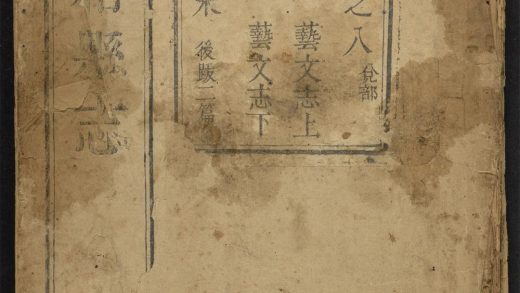 之八 兊部
藝文志上
藝文志下
末 後跋二篇
縣志